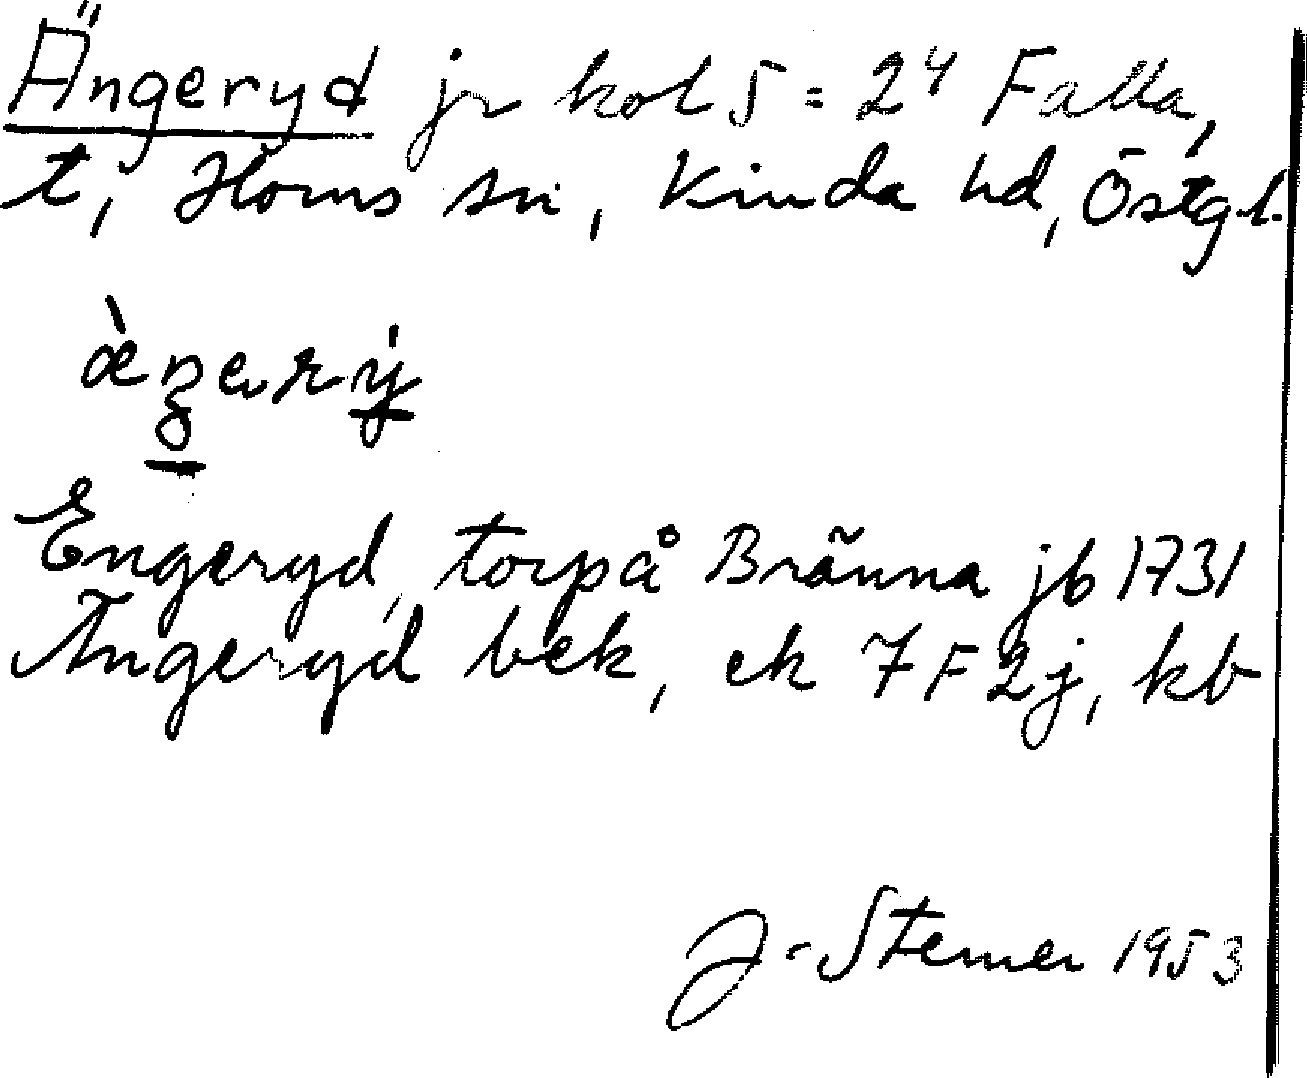 Ängeryd jr kol 5 = 24 Falla,
t, Horns sn, Kinda hd, Östgl.
Engeryd, torp å Bränna jb 1731
Ängeryd bek, ek 7 F 2j, kb
J. Sterner 1953